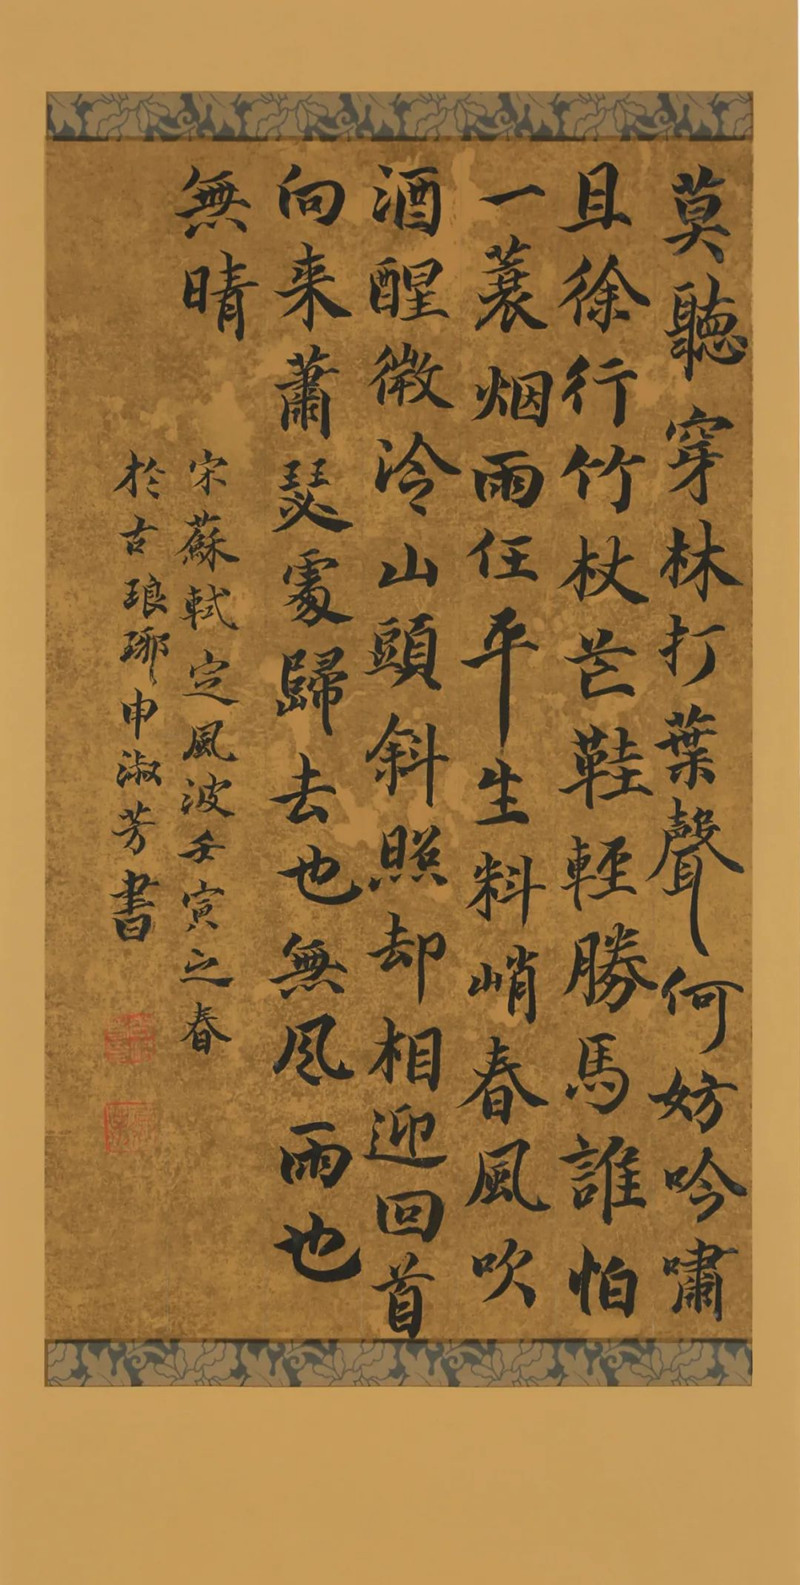 莫聽穿林打葉聲何妨吟嘯
且徐行竹杖芒鞋輕勝馬誰怕
一蓑烟雨任平生料峭春風吹
酒醒微冷山頭斜照却相迎回首
向来蕭瑟處歸去也無风雨也
無晴
宋蘇軾定風波壬寅之春
於古琅琊申淑芳書